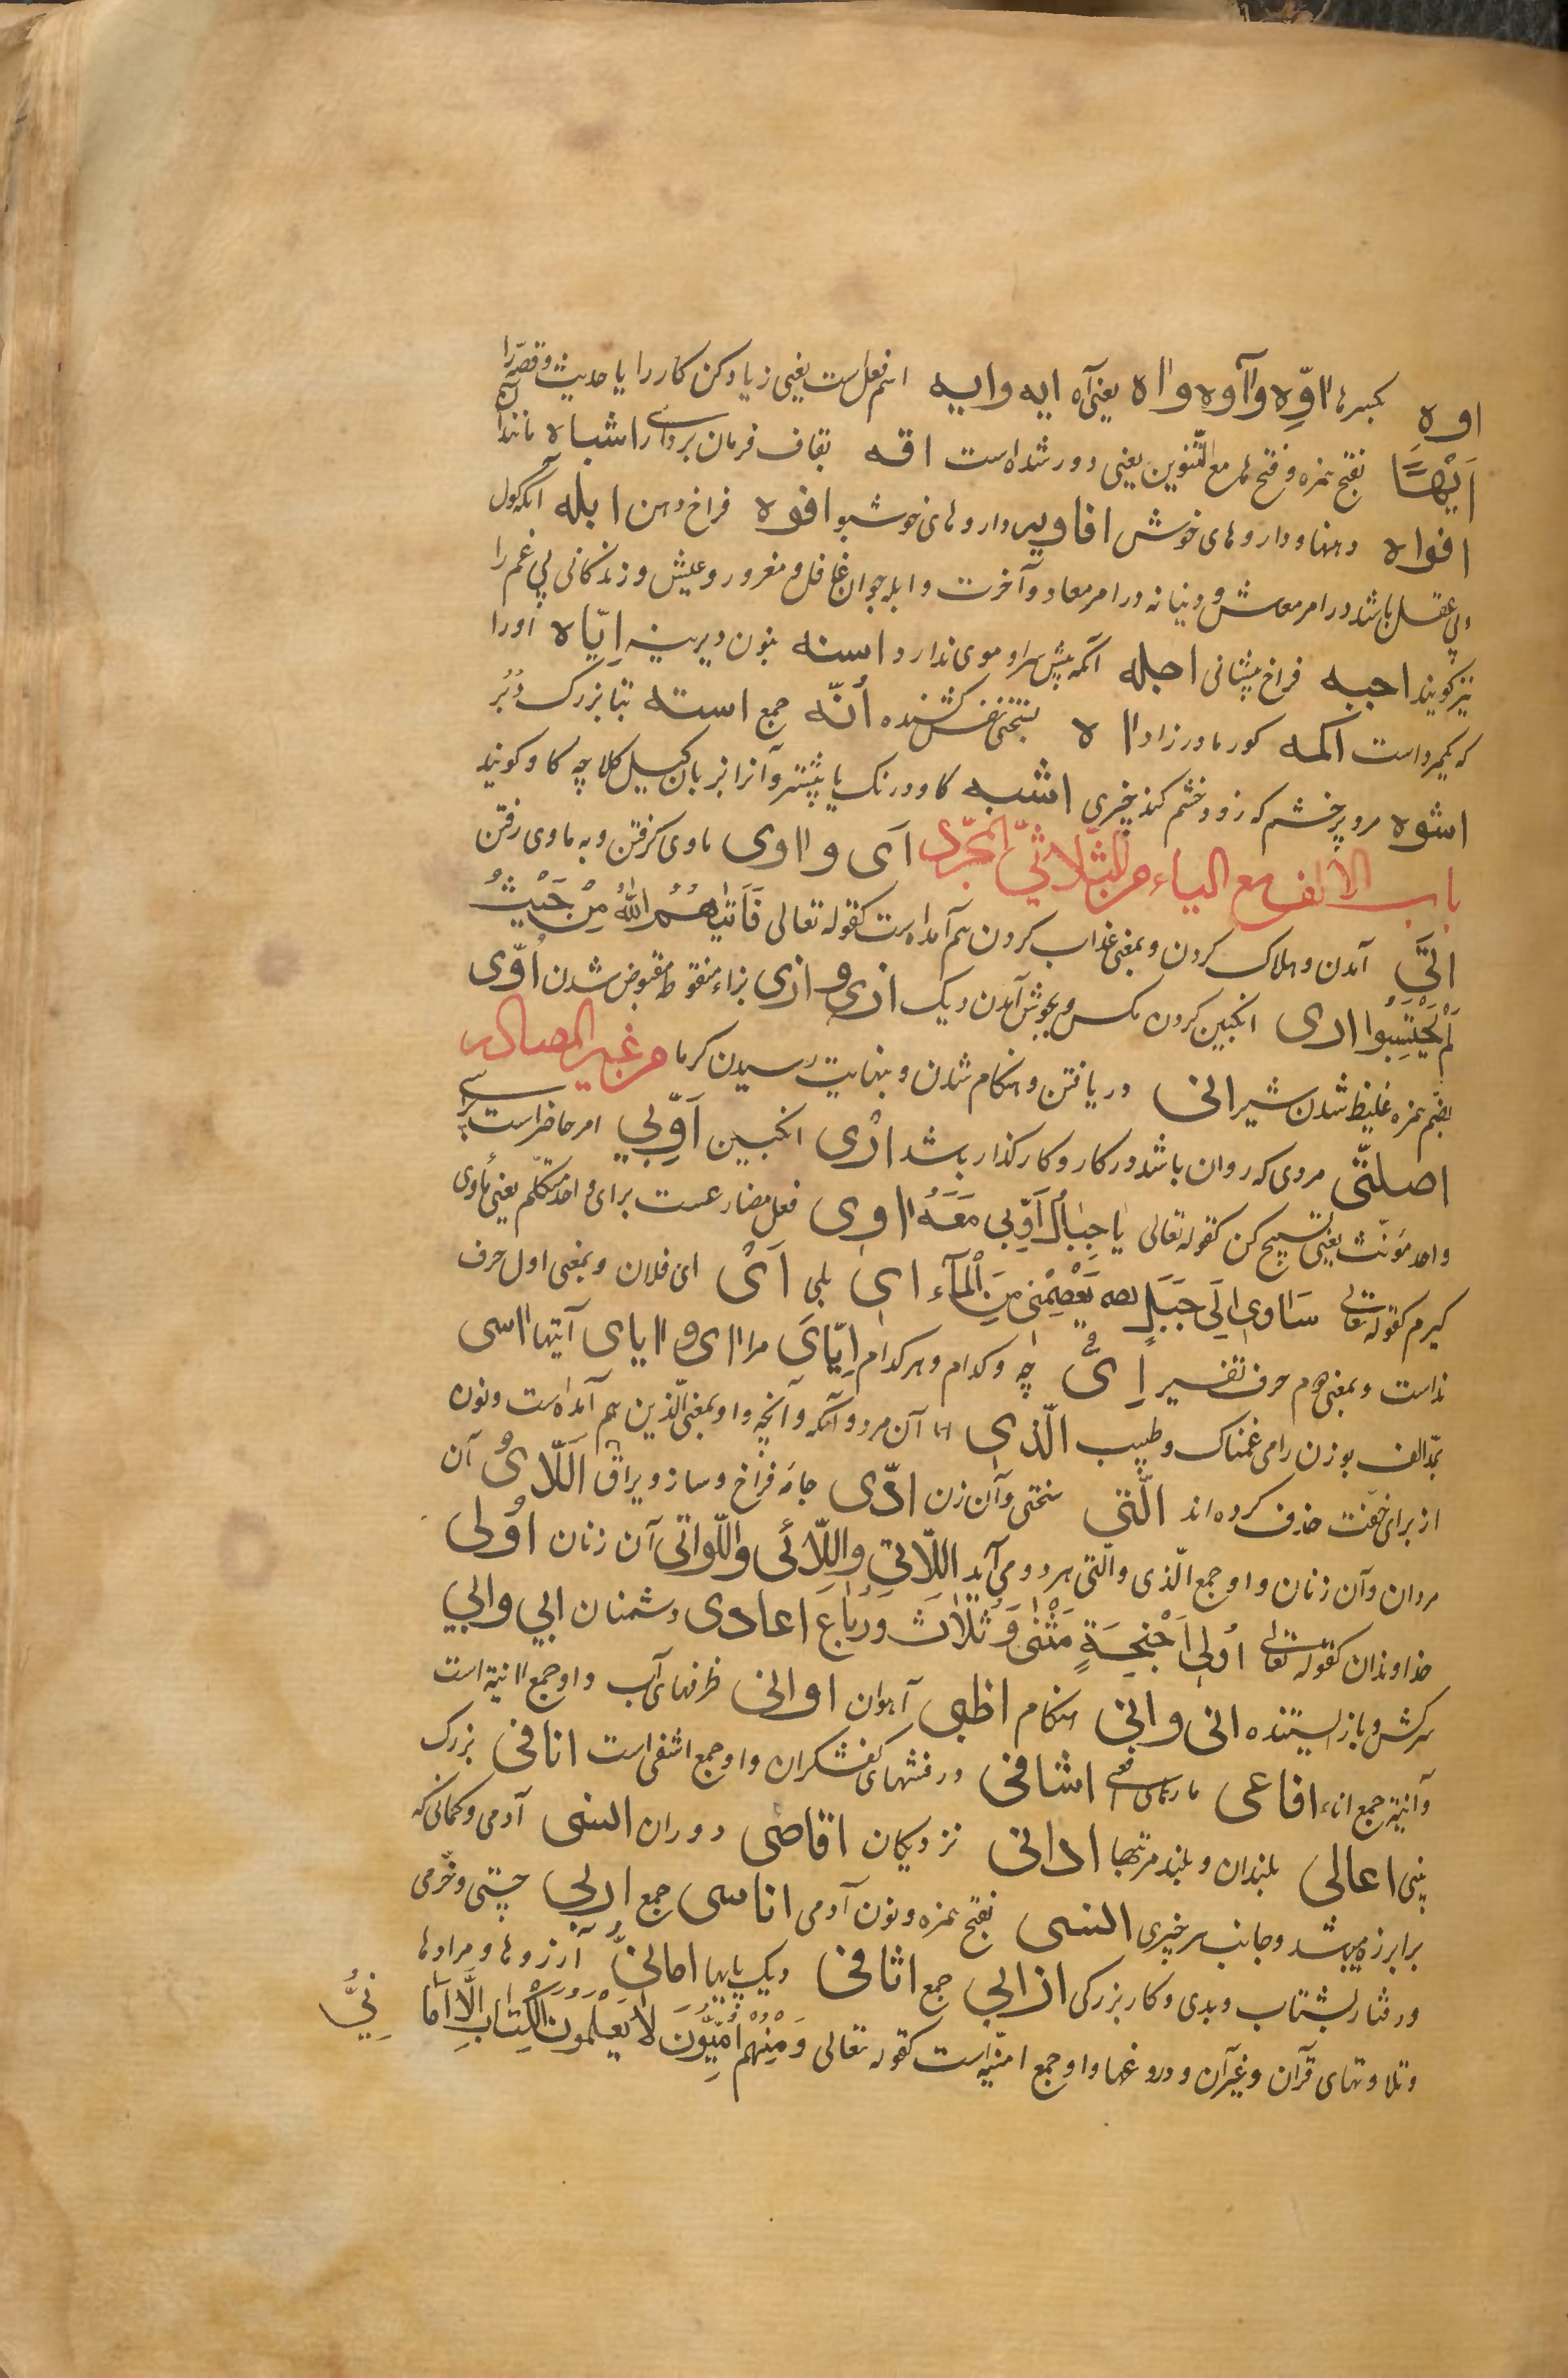 اوه بکسر ها ااوّه وآاوه وااه یعنی آه ایه وایه اسم فعل است یعنی زیاد کن کار را یا حدیث و قصه را
اَیْهًا بفتح همزه و فتح ها مع التّنوین یعنی دور شده است اقه بقاف فرمان برداری اشباه مانندان
افواه دهنها و داروهای خوش افاویه داروهای خوشبو افوه فراخ دهن ابله آنکه گول
و بی عقل باشد در امر معاش و دنیا نه در امر معاد و آخرت و ابله جوان غافل و مغرور و عیش و زندگانی بی غم را
نیز گویند اجبه فراخ پیشانی اجله آنکه پیش سر او موی ندارد اسنه بنون دیرینه اِیّاه اورا
که یکمرد است اکمه کور مادر زاد ااه بفتحتین نفس کشنده اُنّه جمع استه بتا بزرک دُبُر
اشوه مرد پر خشم که زود خشم کند بچیزی اشبه کاو درنک یا بیشتر و آنرا بزبان کیل کلاچه کاو گویند
باب الالف مع الیاء من الثّلاثیّ المجرّد اَی وااوی ماوی گرفتن و به ماوی رفتن
اَتَی آمدن و هلاک کردن و بمعنی عذاب کردن هم آمده است کقوله تعالی فَاَتٰیهُمُ اللّٰهُ مِنْ حَیْثُ
لَمْ یَحْتَسِبُوا اری انگبین کردن مگس و بجوش آمدن دیک ازی و ازی بزاء منقوطه مقبوض شدن اوّی
بضم همزه غلیظ شدن شیر انی دریافتن و هنگام شدن و بنهایت رسیدن کرما من غیر المصادر
اصلتّی مردی که روان باشد در کار و کارگذار باشد ارْی انگبین اَوِّبی امر حاضر است برای
واحد مؤنّث یعنی تسبیح کن کقوله تعالی یا جِبٰالُ اَوِّبی مَعَهُ ااوی فعل مضارعست برای واحد متکلّم یعنی مأوی
کیرم کقوله تعالی سَاٰوی اِلَی جَبَلٍ یَعْصِمُنی مِنَ الْمٰآء ای بلی اَیْ ای فلان و بمعنی اول حرف
نداست و بمعنی دوم حرف تفسیر اَیُّ چه و کدام و هر کدام اِیّایَ مرا اای و اایای آیتها ااسی
بمد الف بوزن رامی غمناک و طبیب الّذی آن مرد و آنکه و آنچه و او بمعنی الّذین هم آمده است و نون
از برای خفّت حذف کرده اند الّتی سختی و آن زن ادّی جامه فراخ و ساز و یراق اَللّایُ آن
مردان و آن زنان و او جمع الّذی و الّتی هر دو می آید اللّاتی واللّائی واللّواتی آن زنان اُولی
خداوندان کقوله تعالی اُولی اَجْنِحَةٍ مَثْنٰی وَ ثُلٰاثَ وَ رُبٰاعَ اعادی دشمنان ابی وابی
سرکش و باز ایستنده انی وانی هنگام اظبی آهوان اوانی ظرفهای آب و او جمع اانیة است
و آنیة جمع اناء افاعی مارهای افعی اشافی درفشهای کفشکران و او جمع اشفی است انافی بزرک
بینی اعالی بلندان و بلند مرتبها ادانی نزدیکان اقاصی دوران انسی آدمی و کمانی که
برابر زه میباشد و جانب هر چیزی انسی بفتح همزه و نون آدمی اناسی جمع اربی چستی و خرّمی
و رفتار بشتاب و بدی و کار بزرکی ازابی جمع اثافی دیک پایها امانیُّ آرزوها و مرادها
و تلاوتهای قرآن و غیر آن و دروغها و او جمع امنیّه است کقوله تعالی وَ مِنْهُمْ اُمِّیُّونَ لٰا یَعْلَمُونَ الْکِتٰابَ اِلّٰا اَمٰانِیَّ